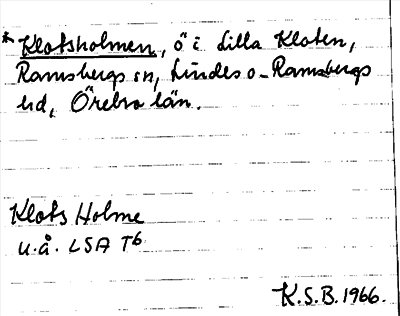 * Klotsholmen, ö i Lilla Kloten,
Ramsbergs sn, Lindes o. Ramsbergs
hd, Örebro län.
Klots Holme
u.å. LSA T6
K.S.B. 1966.